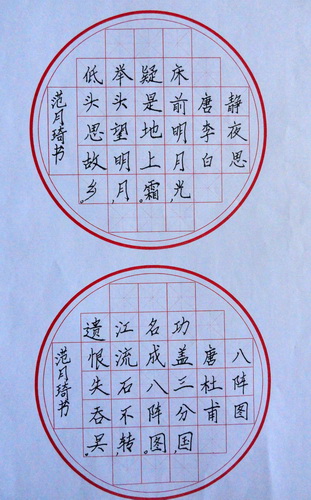 静夜思
唐李白
床前明月光,
疑是地上霜。
举头望明月,
低头思故乡。
范月琦书
八阵图
唐杜甫
功盖三分国,
名成八阵图。
江流石不转,
遗恨失吞吴。
范月琦书